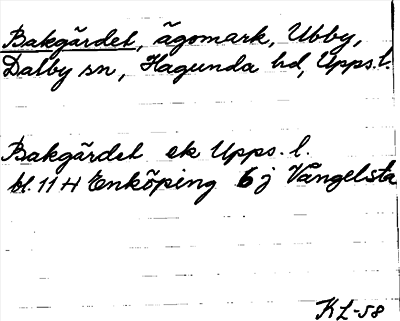 Bakgärdet, ägomark, Ubby,
Dalby sn, Hagunda hd, Upps. l.
Bakgärdet ek Upps. l.
bl. 11 H Enköping 6 j Vångelsta
KL-58